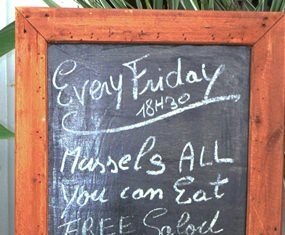 Every Friday
18H30
Mussels ALL
You can Eat
FREE Salad